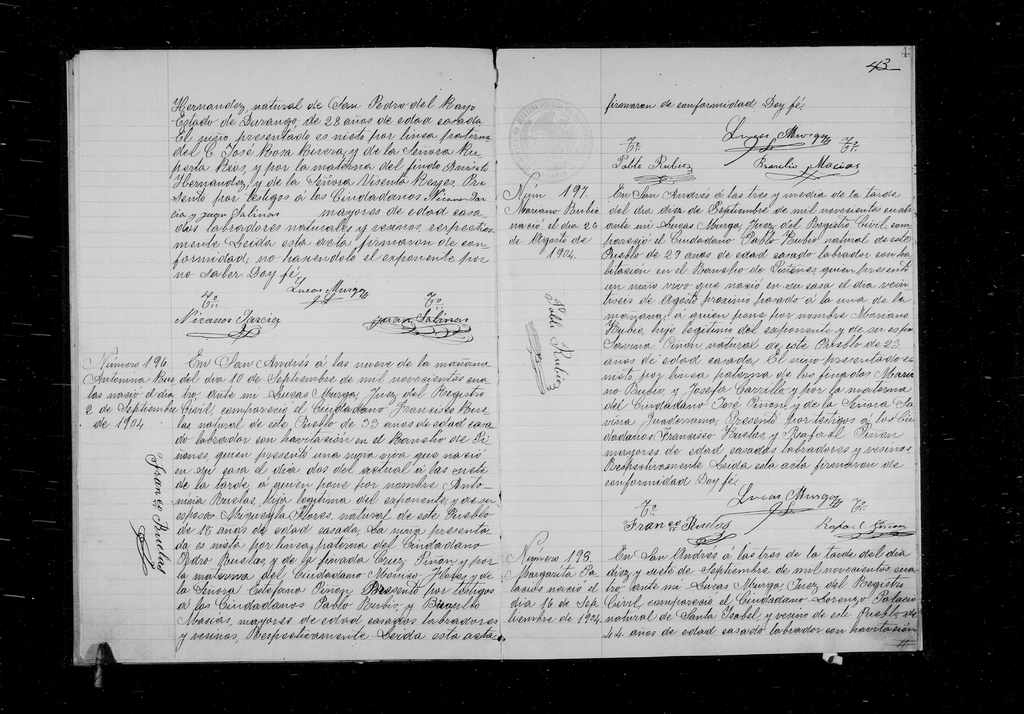 Hernandez, natural de San Pedro del Mayo
Estado de Durango, de 28 años de edad casada
El niño presentado es nieto por linea paterna
del C. José Rosa Rivera, y de la Señora Ru-
perta Rios, y por la materna del finado
Hernandez, y de la Señora Visenta Reyes. Pre-
sento por testigos á los Ciudadanos Nicanor Gar-
cia y Juan Salinas mayores de edad casa
dos labradores naturales y vecinos, respectiva-
mente Leida esta acta firmaron de con-
formidad, no haciendolo el exponente por
no saber Doy fé.
Lucas Murga
To. To.
Nicanor Garcia Juan Salinas
Número 196
Antonina Bus
tas nació el dia
2 de Septiembre
de 1904
Franco Bustas
En San Andrés á las nueve de la mañana
del dia 10 de Septiembre de mil novecientos cua
tro, ante mi Lucas Murga, Juez del Registro
Civil, comparecio el Ciudadano Francisco Bus-
tas natural de este Pueblo de 33 años de edad casa
do labrador con havitación en el Barrio de
quien presentó una niña viva que nació
en su casa el dia dos del actual á las siete
de la tarde, á quien pone por nombre Anto-
nina Bustas, hija legitima del exponente, y de su
esposa Flores, natural de este Pueblo
de 18 años de edad casada, La niña presenta
da es nieta por linea paterna del Ciudadano
Pedro Bustas, y de la finada Cruz Piñon, y por
la materna del Ciudadano Flores, y de
la Señora Estefana Piñon Presentó por testigos
á los Ciudadanos Pablo Rubio, y
Macias, mayores de edad casados labradores
y vecinos, Respectivamente Leida esta acta
43
firmaron de conformidad Doy fé.
Lucas Murga
To. To.
Pablo Rubio Macias
Núm 197
Mariano Rubio
nació el dia 26
de Agosto de
1904.
Pablo Rubio
En San Andrés á las tres y media de la tarde
del dia de Septiembre de mil novecientos cuatro
ante mi Lucas Murga, Juez del Registro Civil, com
parecio el Ciudadano Pablo Rubio natural de este
Pueblo de 29 años de edad casado labrador con ha
bitacion en el Barrio de quien presentó
un niño vivo que nació en su casa el dia vein
tiseis de Agosto proximo pasado á la una de la
mañana, á quien pone por nombre Mariano
Rubio, hijo legitimo del exponente y de su esposa
Savina Piñon natural de este Pueblo de 23
años de edad casada, El niño presentado es
nieto por linea paterna de los finados Maria
no Rubio, y Josefa Carrillo y por la materna
del Ciudadano José Piñon, y de la Señora Sa-
vina Presentó por testigos á los Ciu
dadanos Francisco Bustas y Rafael Piñon
mayores de edad casados labradores y vecinos
Respectivamente Leida esta acta firmaron de
conformidad Doy fé.
Lucas Murga
To. To.
Franco Bustas Rafael Piñon
Número 198
Margarita Pa
lacios nació el
dia 16 de Sep
tiembre de 1904.
En San Andrés, á las tres de la tarde del dia
diez y siete de Septiembre de mil novecientos cua
tro ante mi Lucas Murga Juez del Registro
Civil comparecio el Ciudadano Lorenzo Palacio
natural de Santa Isabel, y vecino de este Pueblo de
44 años de edad casado labrador con havitación